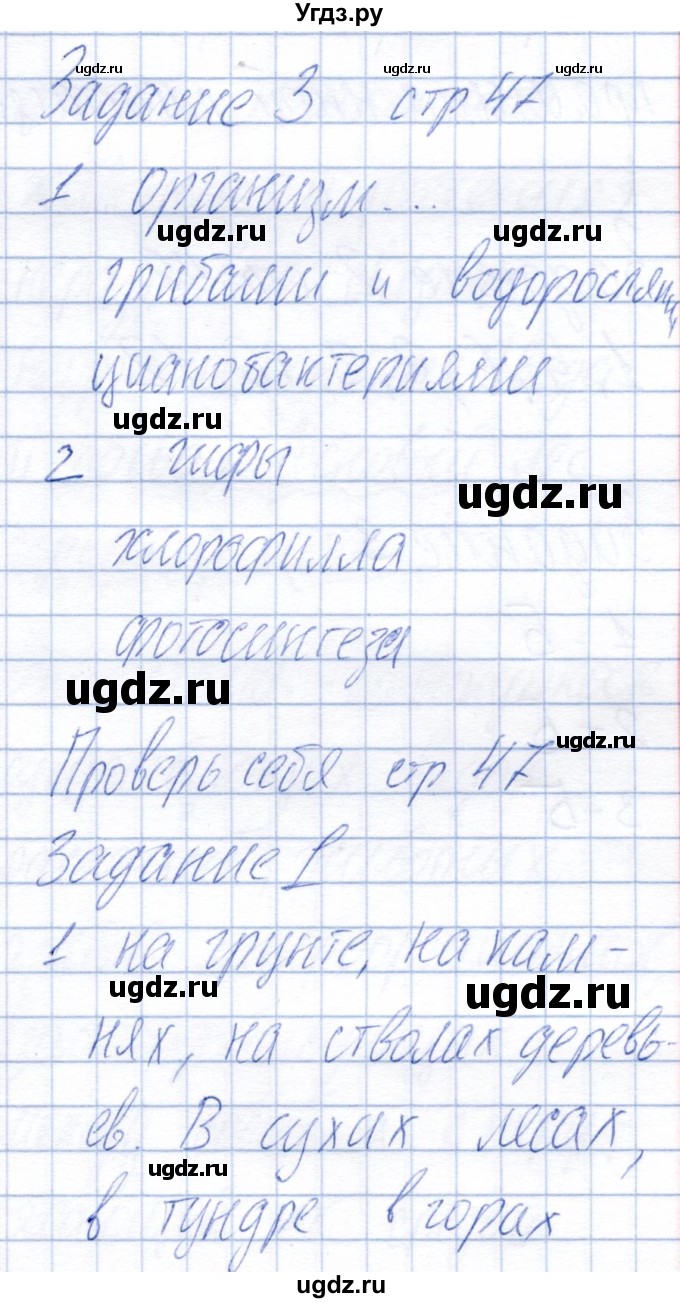 Угдз.ру
ugdz.ru ugdz.ru ugdz.ru
Задание 3 стр 47
1 организм...
ugdz.ru ugdz.ru
грибами и водорослями,
цианобактериями
ugdz.ru
2 гифы
ugdz.ru
хлорофилла
фотосинтеза
ugdz.ru
ugdz.ru
Проверь себя стр 47
Задание 1
1 на грунте, на кам-
ugdz.ru ugdz.ru
нях, на стволах деревь-
ев. В сухих лесах,
ugdz.ru
в тундре в горах
ugdz.ru